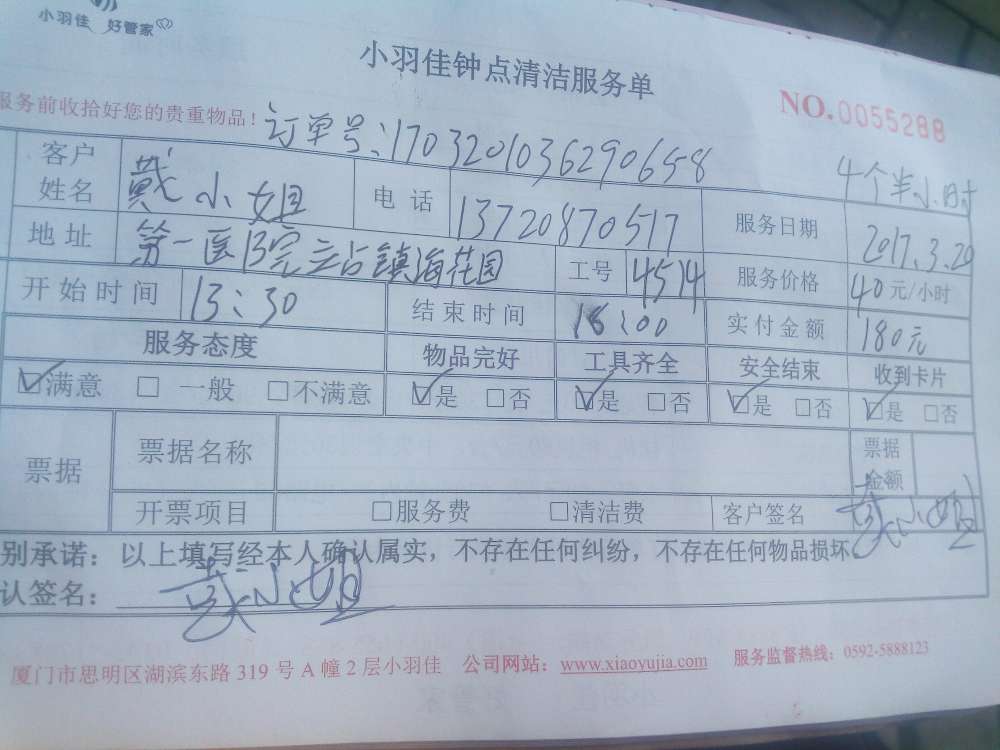 小羽佳 好管家
小羽佳钟点清洁服务单
服务前收拾好您的贵重物品! NO.0055288
订单号:17032010362906 58 4个半小时
客户姓名 戴小姐 电话 13720870517 服务日期 2017.3.20
地址 第一医院立占镇海花园 工号 4514 服务价格 40元/小时
开始时间 13:30 结束时间 18:00 实付金额 180元
服务态度 物品完好 工具齐全 安全结束 收到卡片
☑满意 □一般 □不满意 ☑是 □否 ☑是 □否 ☑是 □否 ☑是 □否
票据 票据名称 票据金额
开票项目 □服务费 □清洁费 客户签名 戴小姐
别承诺:以上填写经本人确认属实,不存在任何纠纷,不存在任何物品损坏
认签名: 戴小姐
厦门市思明区湖滨东路319号A幢2层小羽佳 公司网站:www.xiaoyujia.com 服务监督热线:0592-5888123